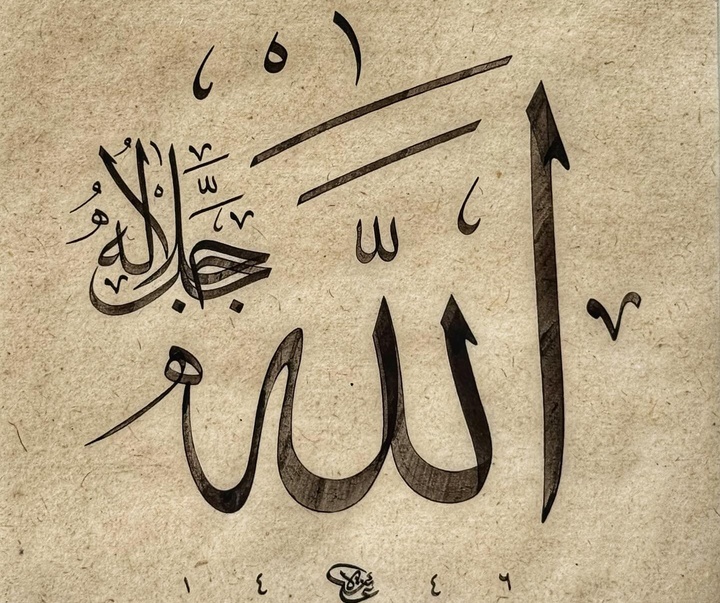 الله
جَلَّ جَلَالُهُ
١٤٤٦